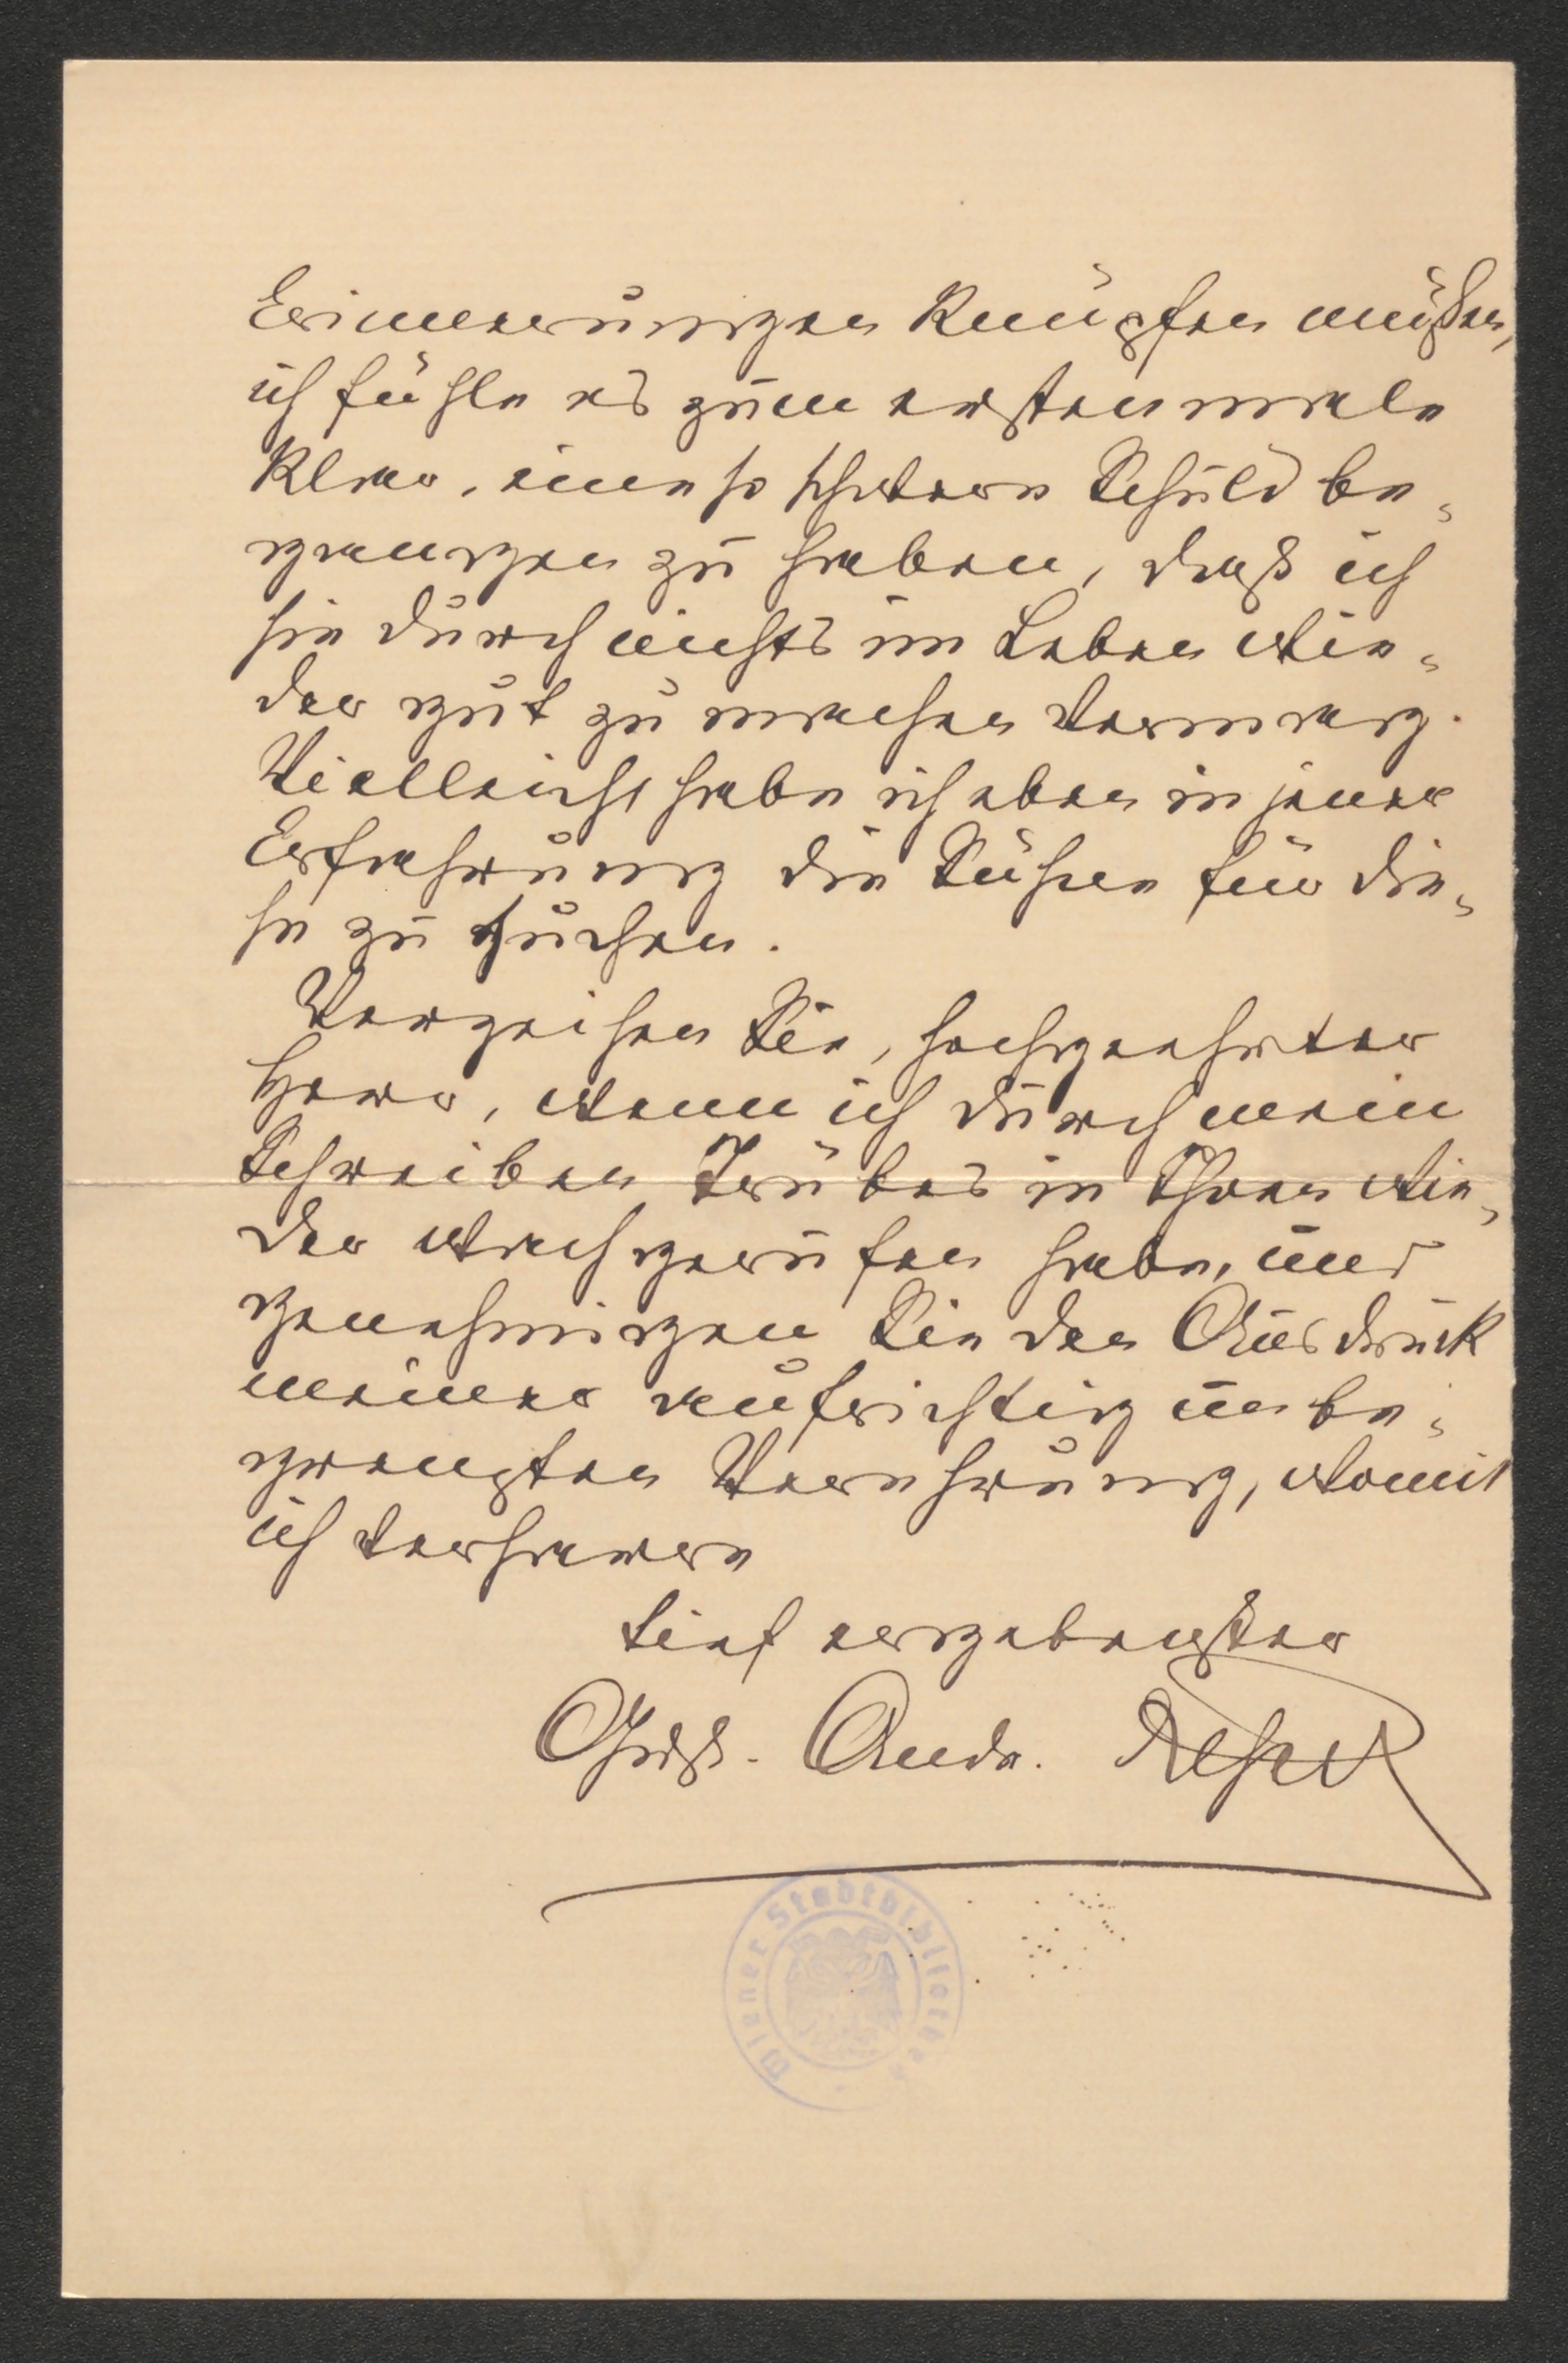 Erinnerungen knüpfen müßen,
ich fühle es zum erstenmale
klar, eine so schwere Schuld be-
gangen zu haben, daß ich
sie durch nichts im Leben wie-
der gut zu machen vermag.
Vielleicht habe ich eben in jener
Erfahrung die Sühne für die-
se zu suchen.
Verzeihen Sie, hochgeehrter
Herr, wenn ich durch mein
Schreiben Trübes in Ihnen wie-
der wachgerufen habe, und
genehmigen Sie den Ausdruck
meiner aufrichtig unbe-
grenzten Verehrung, womit
ich verharre
tief ergebenster
Gust. Andr.
Wiener Stadtbibliothek